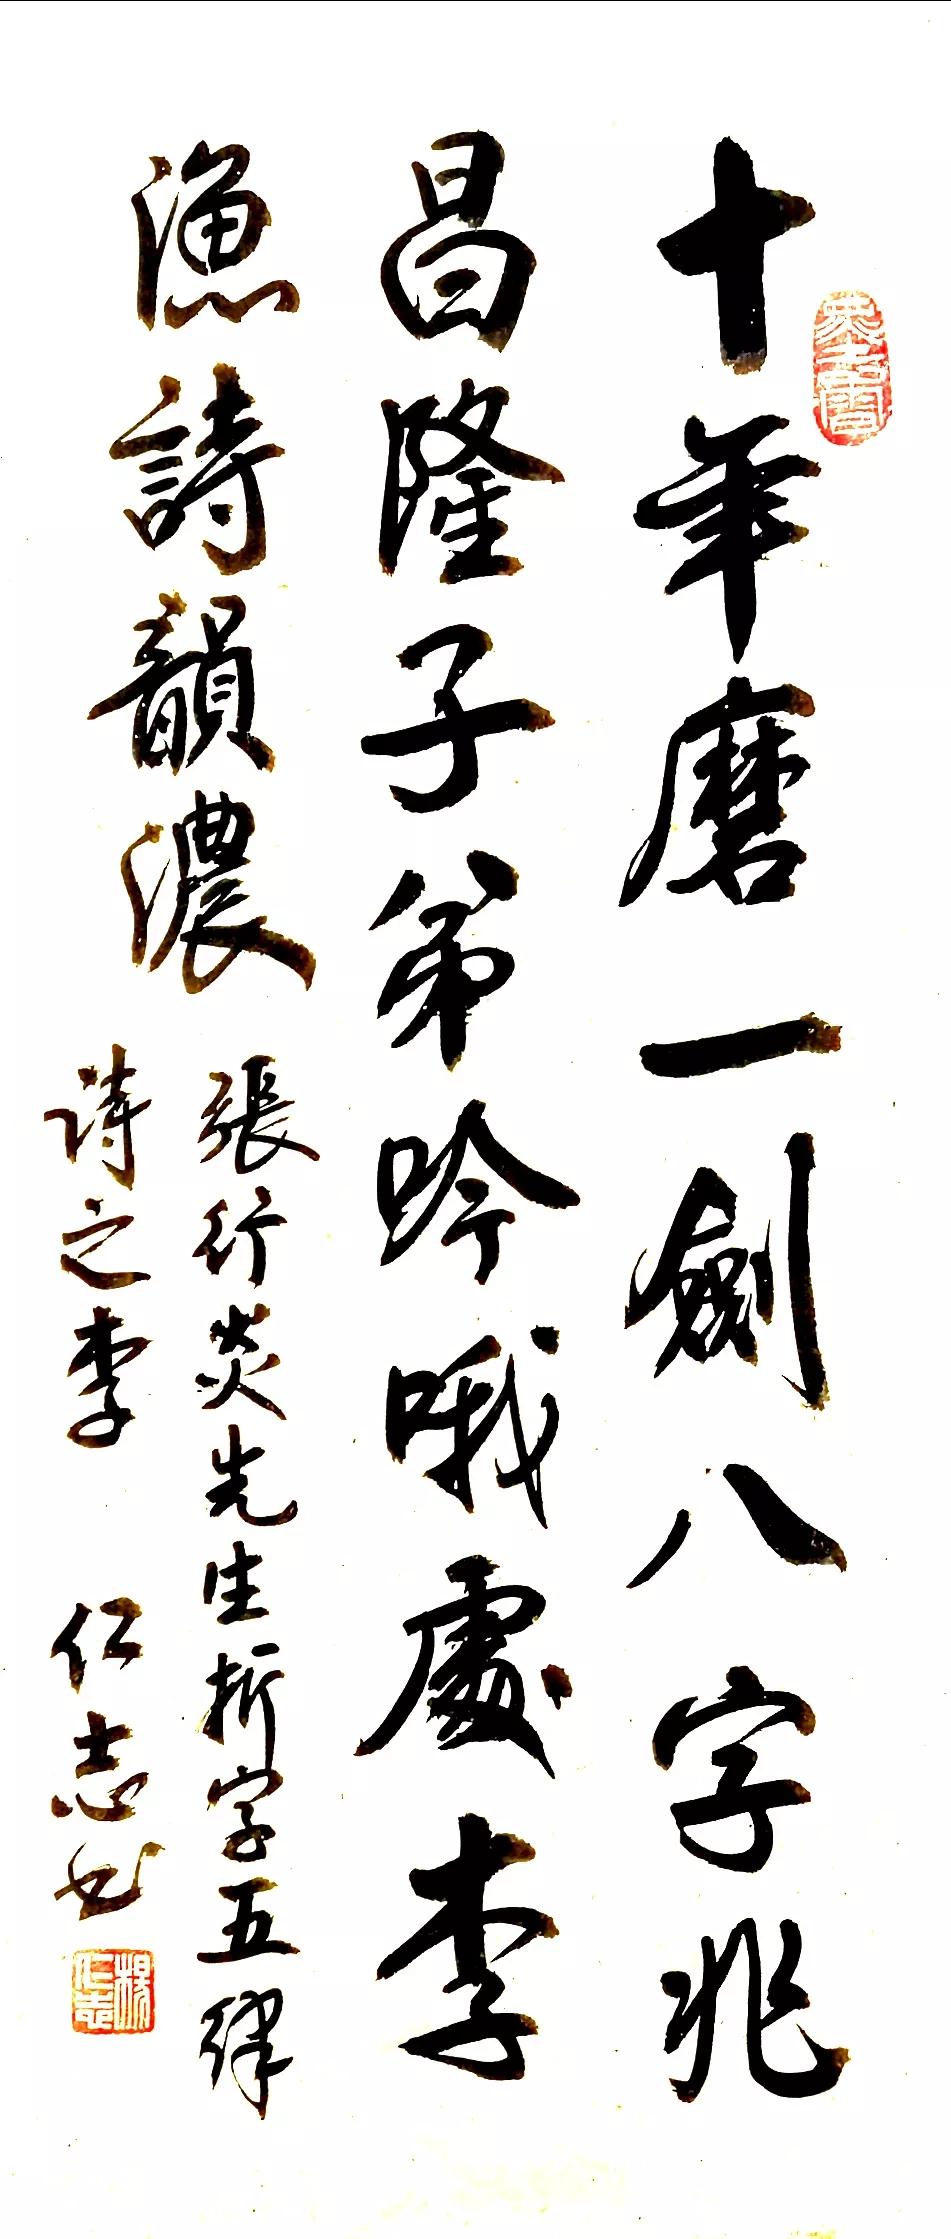 十年磨一劍八字兆
昌隆子弟吟哦處李
漁詩韻濃
張行炎先生析字五律
诗之李
仁志书
楊仁志